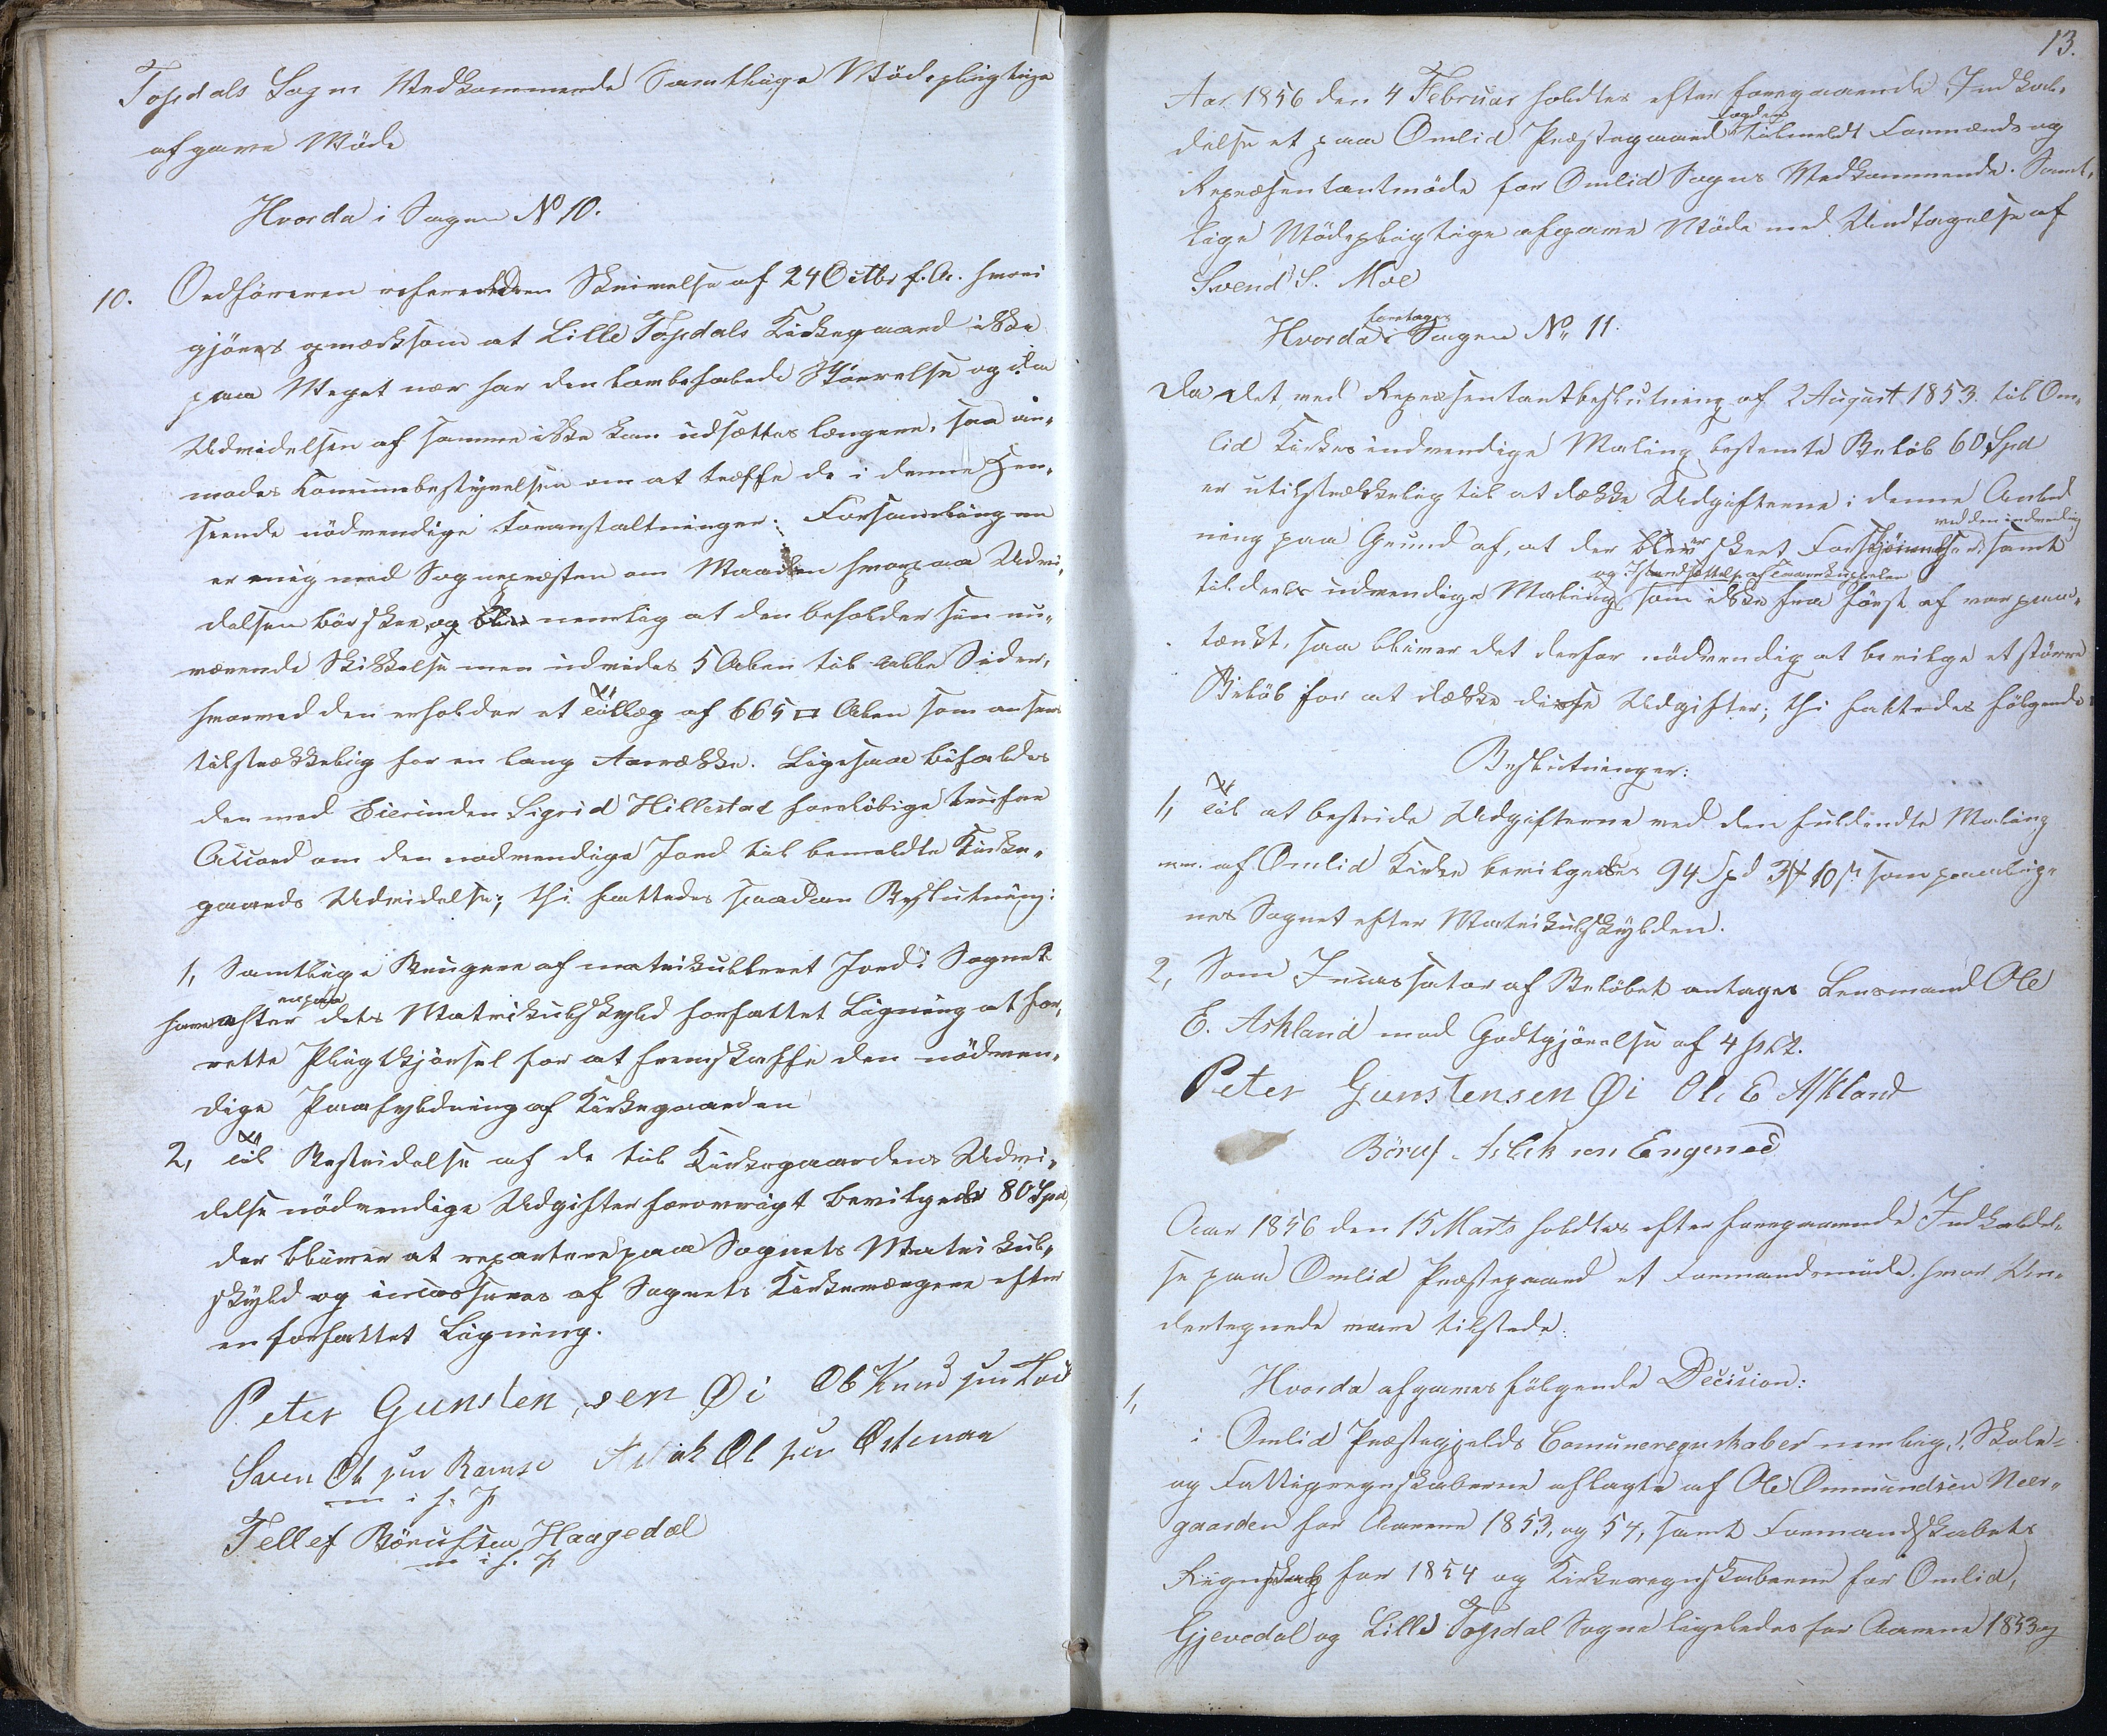 Topdals Sogns Vedkommende Samtlige Mödepligtige
afgave Möde
Hvorda i Sagen No 10.
10. Ordföreren refererede en Skrivelse af 24 Octbr f. A. hvori
gjöres opmærksom at Lille Topdals Kirkegaard ikke
paa Meget nær har den lovbefalede Störrelse og da
Udvidelsen af samme ikke kan udsættes længere, saa an-
modes Communebestyrelsen om at træffe de i denne Hen-
seende nödvendige Foranstaltninger. Forsamlingen
er enig med Sognepræsten om Maaden hvorpaa Udvi-
delsen bör skee, og nemlig at den beholder sin nu-
værende Skikkelse men udvides 5 Alen til alle Sider,
hvorved den erholder et Tillæg af 665 □ Alen som ansees
tilstrækkelig for en lang Aarrække. Ligesaa bifaldes
den med Eierinden Sigrid Hillestad foreløbige trufne
Accord om den nødvendige Jord til bemeldte Kirke-
gaards Udvidelse; thi fattedes saadan Beslutning:
1, Samtlige Brugere af matrikulleret Jord i Sognet
have efter en paa dets Matrikulskyld forfattet Ligning at for-
rette Pligtkjörsel for at fremskaffe den nödven-
dige Paafyldning af Kirkegaarden
2, Til Bestridelse af de til Kirkegaardens Udvi-
delse nödvendige Udgifter forovrigt bevilgedes 80 Spd
der bliver at repartere paa Sognets Matrikul-
skyld og incasseres af Sognets Kirkeværgere efter
en forfattet Ligning.
Peter Gunstensen Øi Ol Knudsen
Sven Olsen Ramse Aslak Olsen
m i h. P
Tellef Börufsen Haagedal
m i h. P
13.
Aar 1856 den 4 Februar holdtes efter foregaaende Indkal-
delse et paa Omlid Præstegaard Tilmeldt Formænds og
Repræsentantmöde for Omlid Sogns Vedkommende. Samt-
lige Mödepligtige afgave Möde med Undtagelse af
Svend S. Moe
Hvorda foretages Sagen No 11.
Da det ved Repræsentantbeslutning af 2 August 1853. til Om-
lid Kirkes indvendige Maling bestemte Belöb 60 Spd
er utilstrækkelig til at dække Udgifterne i denne Anled
ning paa Grund af, at der er skeet Forskjönnelse ved den indvendig samt
til deels udvendige Maling og Istandsættelse af som ikke fra först af var paa-
tænkt, saa bliver det derfor nödvendig at bevilge et större
Belöb for at dække disse Udgifter; thi fattedes fölgende
Beslutninger:
1, Til at bestride Udgifterne ved den fuldendte Maling
m. af Omlid Kirke bevilgedes 94 Spd 3 ₰ 10 s som paalig-
nes Sognet efter Matrikulskylden.
2, Som Incassator af Belöbet antages Lensmand Ole
E. Askland mod Godtgjörelse af 4 pCt.
Peter Gunstensen Øi Ole E Askland
Böruf Aslaksen Engenes
Aar 1856 den 15 Marts holdtes efter foregaaende Indkaldel-
se paa Omlid Præstegaard et Formandsmöde, hvor Un-
dertegnede vare tilstede.
Hvorda afgaves fölgende Decision:
1,
i Omlid Præstegjelds Communeregnskaber nemlig, Skole-
og Fattigregnskaberne aflagte af Ole Ommundsen Neer-
gaarden for Aarene 1853, og 54, samt Formandskabets
Regnskab for 1854 og Kirkeregnskaberne for Omlid,
Gjevedal og Lille Topdal Sogne ligeledes for Aarene 1853 og